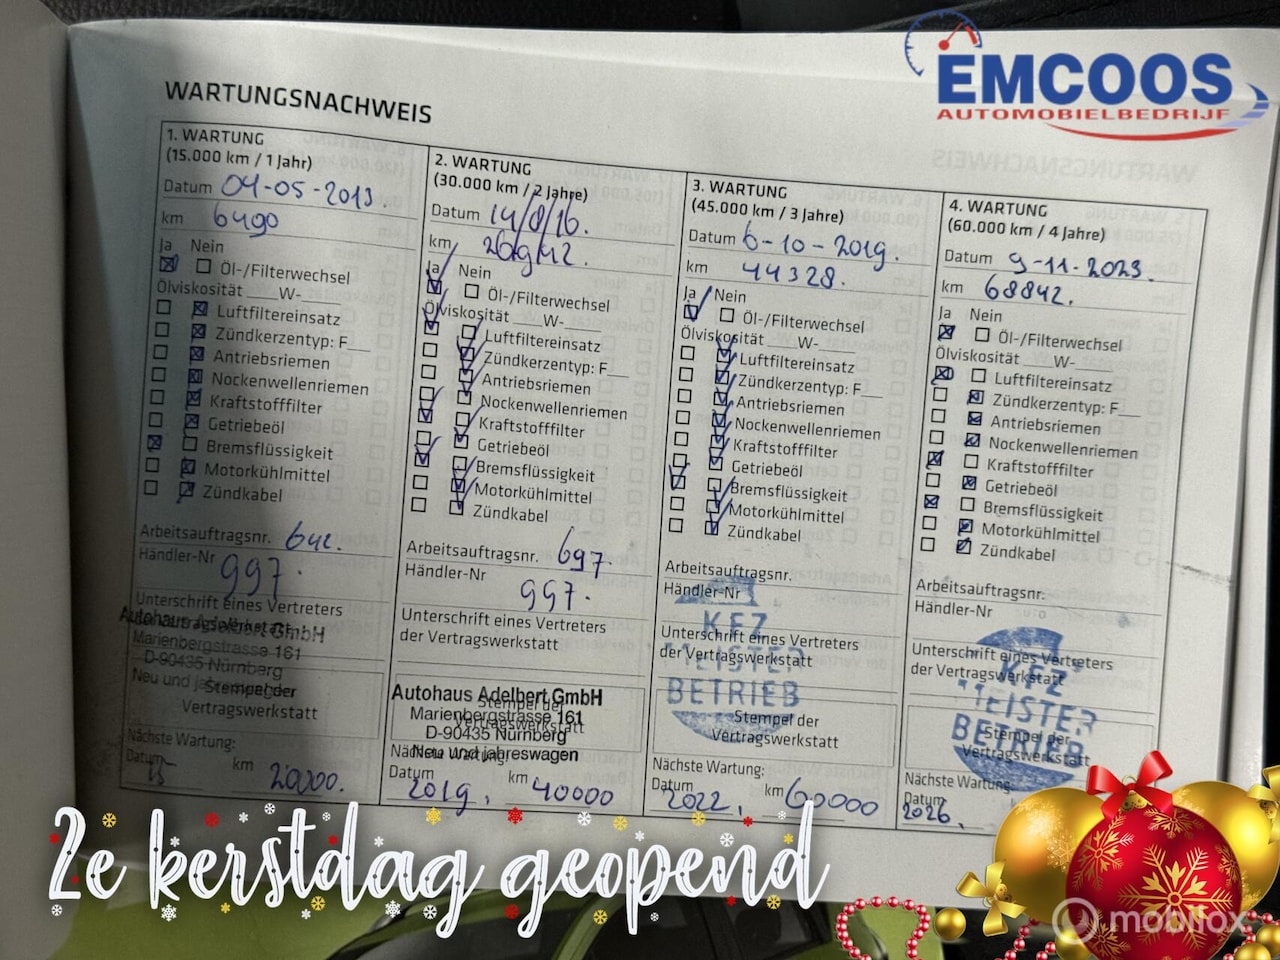 EMCOOS
AUTOMOBIELBEDRIJF
WARTUNGSNACHWEIS
1. WARTUNG
(15.000 km / 1 Jahr)
Datum 04-05-2013.
km 6490
Ja Nein
Öl-/Filterwechsel
Ölviskosität ___W-___
Luftfiltereinsatz
Zündkerzentyp: F___
Antriebsriemen
Nockenwellenriemen
Kraftstofffilter
Getriebeöl
Bremsflüssigkeit
Motorkühlmittel
Zündkabel
Arbeitsauftragsnr. 642.
Händler-Nr
997.
Unterschrift eines Vertreters
Autohaus Adelbert GmbH
Marienbergstrasse 161
D-90435 Nürnberg
Neu und jahreswagen
Stempel der
Vertragswerkstatt
Nächste Wartung:
Datum 15 km 20000.
2. WARTUNG
(30.000 km / 2 Jahre)
Datum 14/8/16.
km 26942.
Ja Nein
Öl-/Filterwechsel
Ölviskosität ___W-___
Luftfiltereinsatz
Zündkerzentyp: F___
Antriebsriemen
Nockenwellenriemen
Kraftstofffilter
Getriebeöl
Bremsflüssigkeit
Motorkühlmittel
Zündkabel
Arbeitsauftragsnr. 697.
Händler-Nr
997.
Unterschrift eines Vertreters
der Vertragswerkstatt
Autohaus Adelbert GmbH
Stempel der
Marienbergstrasse 161
Vertragswerkstatt
D-90435 Nürnberg
Neu und jahreswagen
Nächste Wartung:
Datum km
2019. 40000
3. WARTUNG
(45.000 km / 3 Jahre)
Datum 6-10-2019.
km 44328.
Ja Nein
Öl-/Filterwechsel
Ölviskosität ___W-___
Luftfiltereinsatz
Zündkerzentyp: F___
Antriebsriemen
Nockenwellenriemen
Kraftstofffilter
Getriebeöl
Bremsflüssigkeit
Motorkühlmittel
Zündkabel
Arbeitsauftragsnr.
Händler-Nr
KFZ
Unterschrift eines Vertreters
der Vertragswerkstatt
MEISTER
BETRIEB
Stempel der
Vertragswerkstatt
Nächste Wartung:
Datum km 60000
2022.
4. WARTUNG
(60.000 km / 4 Jahre)
Datum 9-11-2023.
km 68842.
Ja Nein
Öl-/Filterwechsel
Ölviskosität ___W-___
Luftfiltereinsatz
Zündkerzentyp: F___
Antriebsriemen
Nockenwellenriemen
Kraftstofffilter
Getriebeöl
Bremsflüssigkeit
Motorkühlmittel
Zündkabel
Arbeitsauftragsnr.
Händler-Nr
Unterschrift eines Vertreters
der Vertragswerkstatt
KFZ
MEISTER
BETRIEB
Stempel der
Vertragswerkstatt
Nächste Wartung
Datum
2026.
2e kerstdag geopend
mobilox